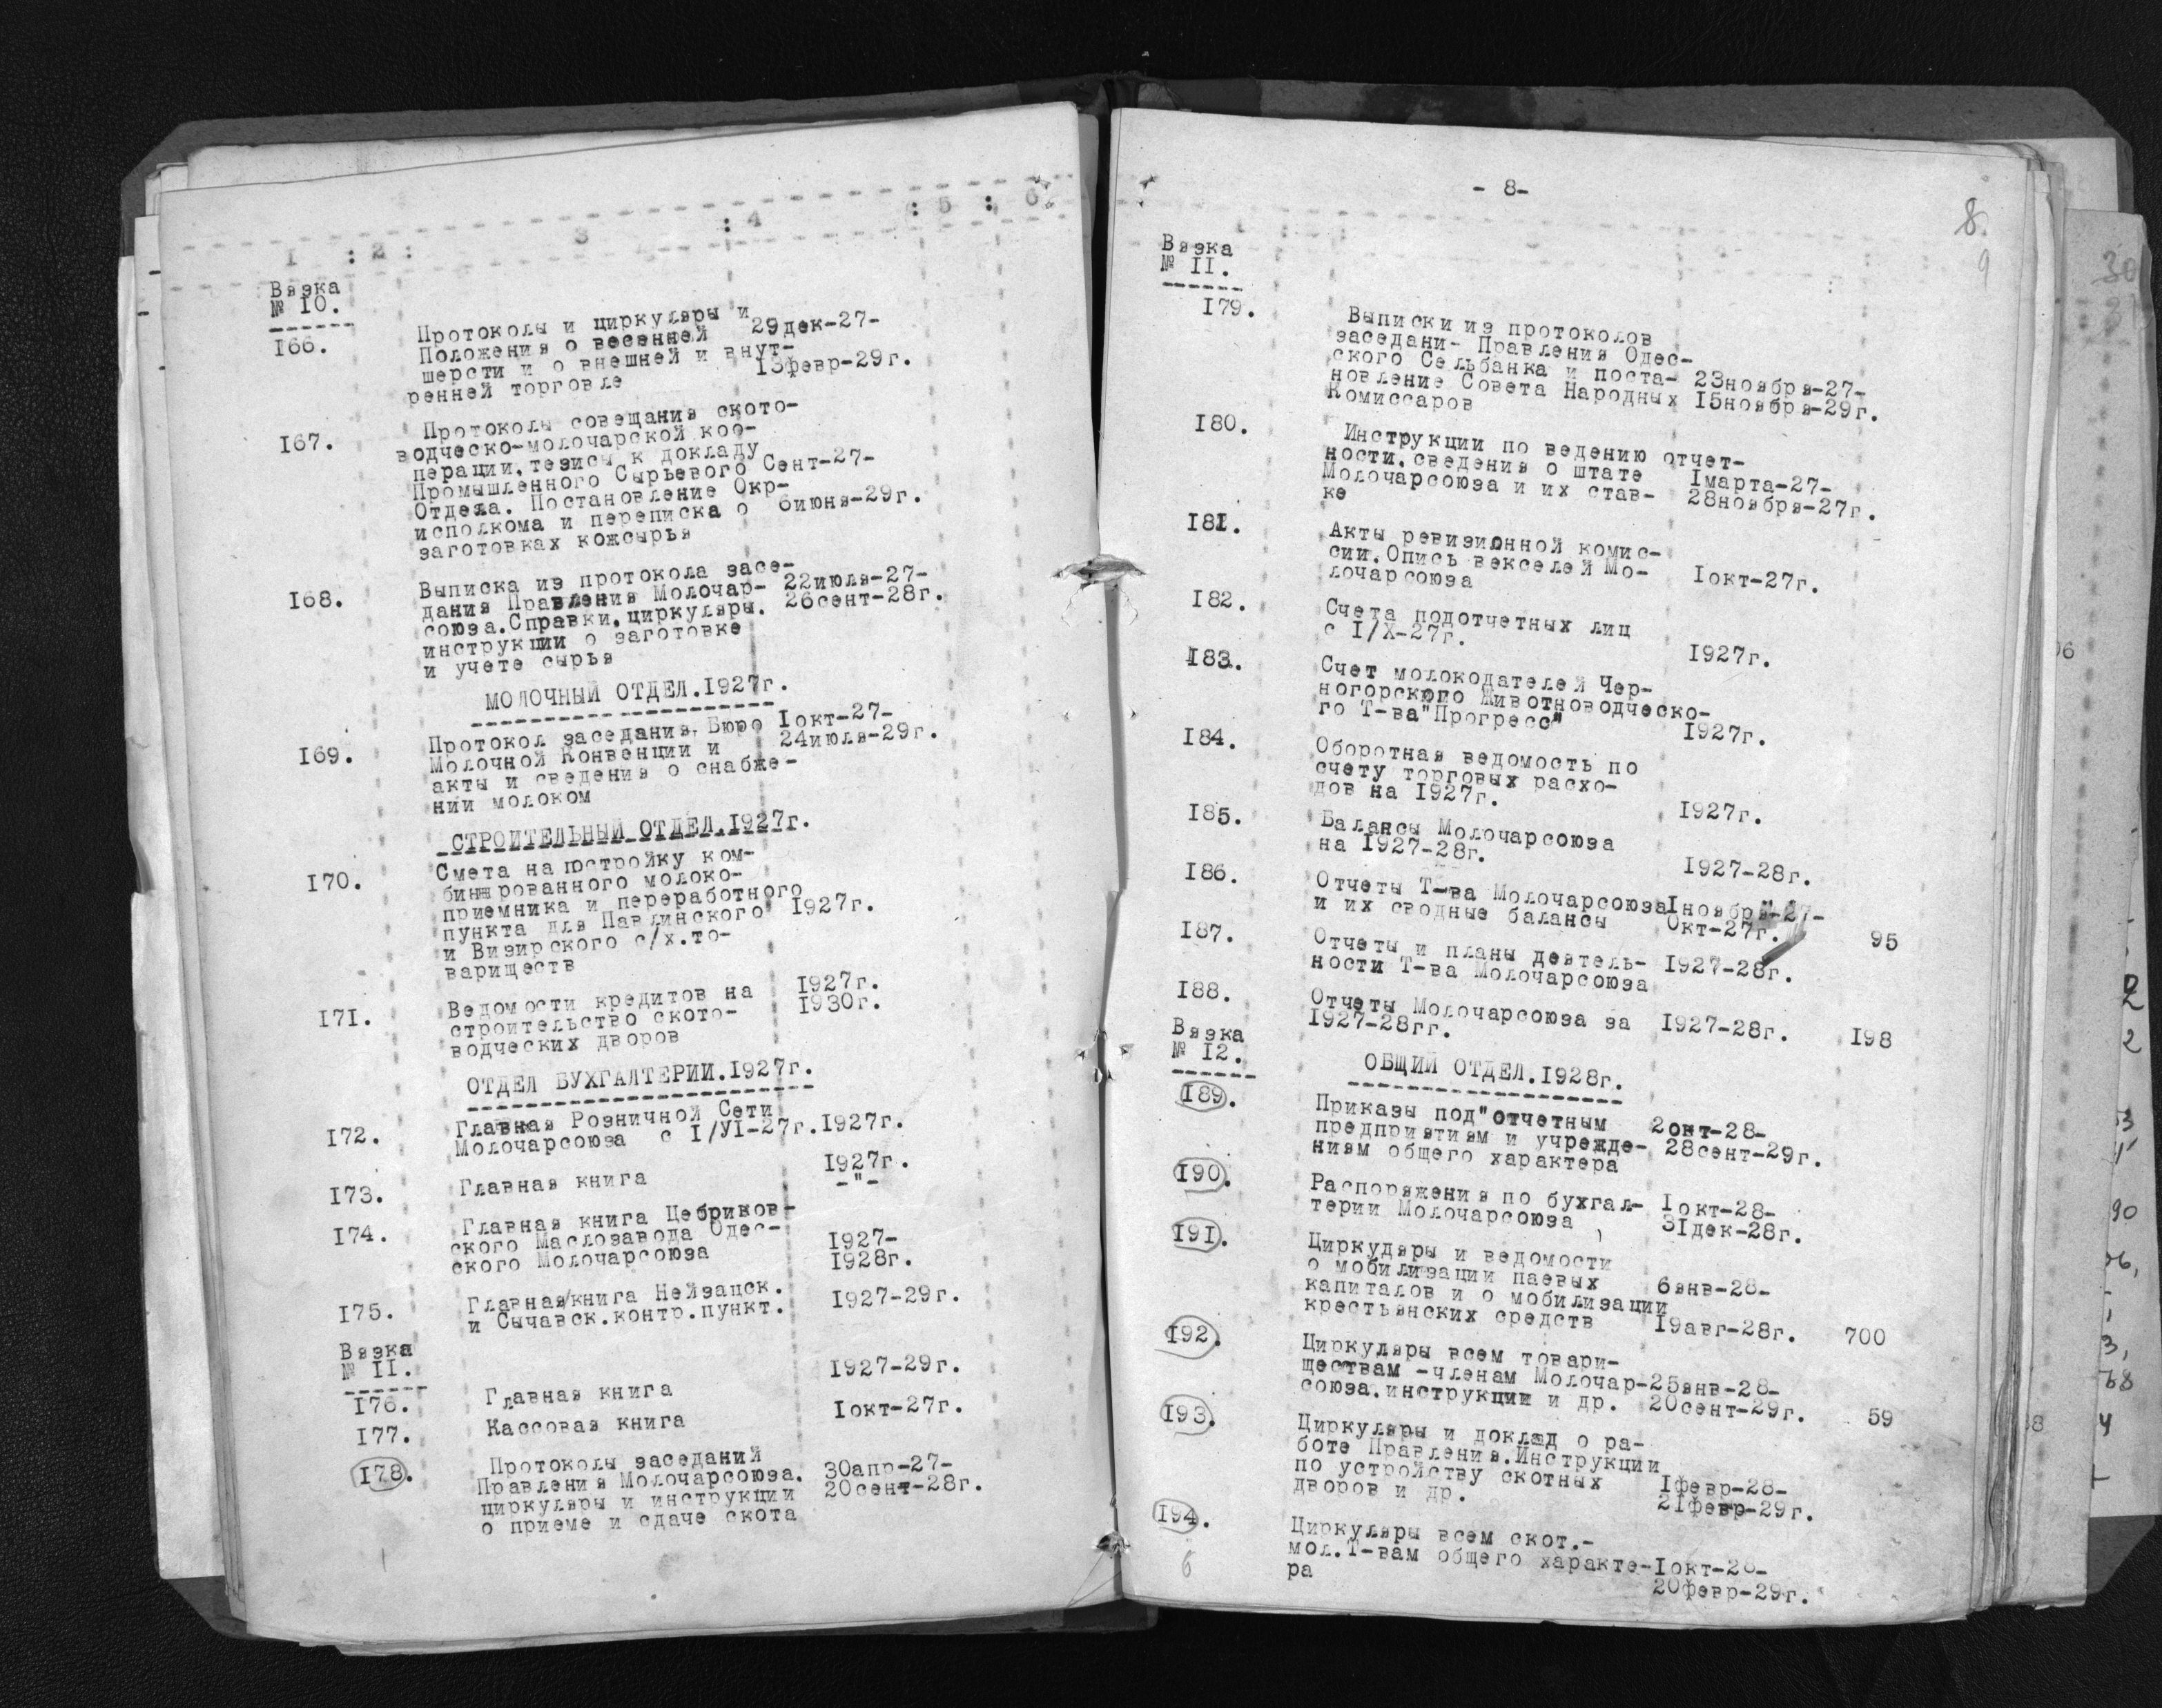 1 : 2 : 3 : 4 : 5 : 6
Вязка
№ 10.
166. Протоколы и циркуляры и
Положения о весенней 29дек-27-
шерсти и о внешней и внут-
ренней торговле 13февр-29г.
167. Протоколы совещания ското-
водческо-молочарской коо-
перации,тезисы к докладу
Промышленного Сырьевого Сент-27-
Отдела. Постановление Окр-
исполкома и переписка о 6июня-29г.
заготовках кожсырья
168. Выписка из протокола засе-
дания Правления Молочар- 22июля-27-
союза.Справки,циркуляры. 26сент-28г.
инструкции о заготовке
и учете сырья
МОЛОЧНЫЙ ОТДЕЛ.1927г.
169. Протокол заседания, Бюро 1окт-27-
Молочной Конвенции и 24июля-29г.
акты и сведения о снабже-
нии молоком
СТРОИТЕЛЬНЫЙ ОТДЕЛ.1927г.
170. Смета на постройку ком-
бинированного молоко-
приемника и переработного
пункта для Павлинского 1927г.
и Визирского с/х.то-
вариществ
171. Ведомости кредитов на 1927г.
строительство ското- 1930г.
водческих дворов
ОТДЕЛ БУХГАЛТЕРИИ.1927г.
172. Главная Розничной Сети
Молочарсоюза с I/УI-27г.1927г.
173. Главная книга 1927г.
-"-
174. Главная книга Цебриков-
ского Маслозавода Одес- 1927-
ского Молочарсоюза 1928г.
175. Главная/книга Нейзацск. 1927-29г.
и Сычавск.контр.пункт.
Вязка
№ II.
176. Главная книга 1927-29г.
177. Кассовая книга 1окт-27г.
178. Протоколы заседаний
Правления Молочарсоюза. 30апр-27-
циркуляры и инструкции 20сент-28г.
о приеме и сдаче скота
- 8-
8.
9
Вязка
№ II.
179. Выписки из протоколов
заседани- Правления Одес-
ского Сельбанка и поста- 23ноября-27-
новление Совета Народных 15ноября-29г.
Комиссаров
180. Инструкции по ведению отчет-
ности,сведения о штате 1марта-27-
Молочарсоюза и их став- 28ноября-27г.
ке
181. Акты ревизионной комис-
сии.Опись векселей Мо- 1окт-27г.
лочарсоюза
182. Счета подотчетных лиц
с I/X-27г. 1927г.
183. Счет молокодателей Чер-
ногорского Животноводческо-
го Т-ва"Прогресс" 1927г.
184. Оборотная ведомость по
счету торговых расхо-
дов на 1927г. 1927г.
185. Балансы Молочарсоюза
на 1927-28г. 1927-28г.
186. Отчеты Т-ва Молочарсоюза1ноября-27-
и их сводные балансы Окт-27г. 95
187. Отчеты и планы деятель- 1927-28г.
ности Т-ва Молочарсоюза
188. Отчеты Молочарсоюза за 1927-28г. 198
1927-28гг.
Вязка
№ 12.
ОБЩИЙ ОТДЕЛ.1928г.
189. Приказы под"отчетным 2окт-28-
предприятиям и учрежде- 28сент-29г.
ниям общего характера
190. Распоряжения по бухгал- 1окт-28-
терии Молочарсоюза 31дек-28г.
191. Циркуляры и ведомости
о мобилизации паевых 6янв-28-
капиталов и о мобилизации
крестьянских средств 19авг-28г. 700
192. Циркуляры всем товари-
ществам -членам Молочар-25янв-28-
союза.инструкции и др. 20сент-29г. 59
193. Циркуляры и доклад о ра-
боте Правления.Инструкции
по устройству скотных 1февр-28-
дворов и др. 21февр-29г.
194. Циркуляры всем скот.-
мол.Т-вам общего характе-1окт-28-
ра 20февр-29г.
6